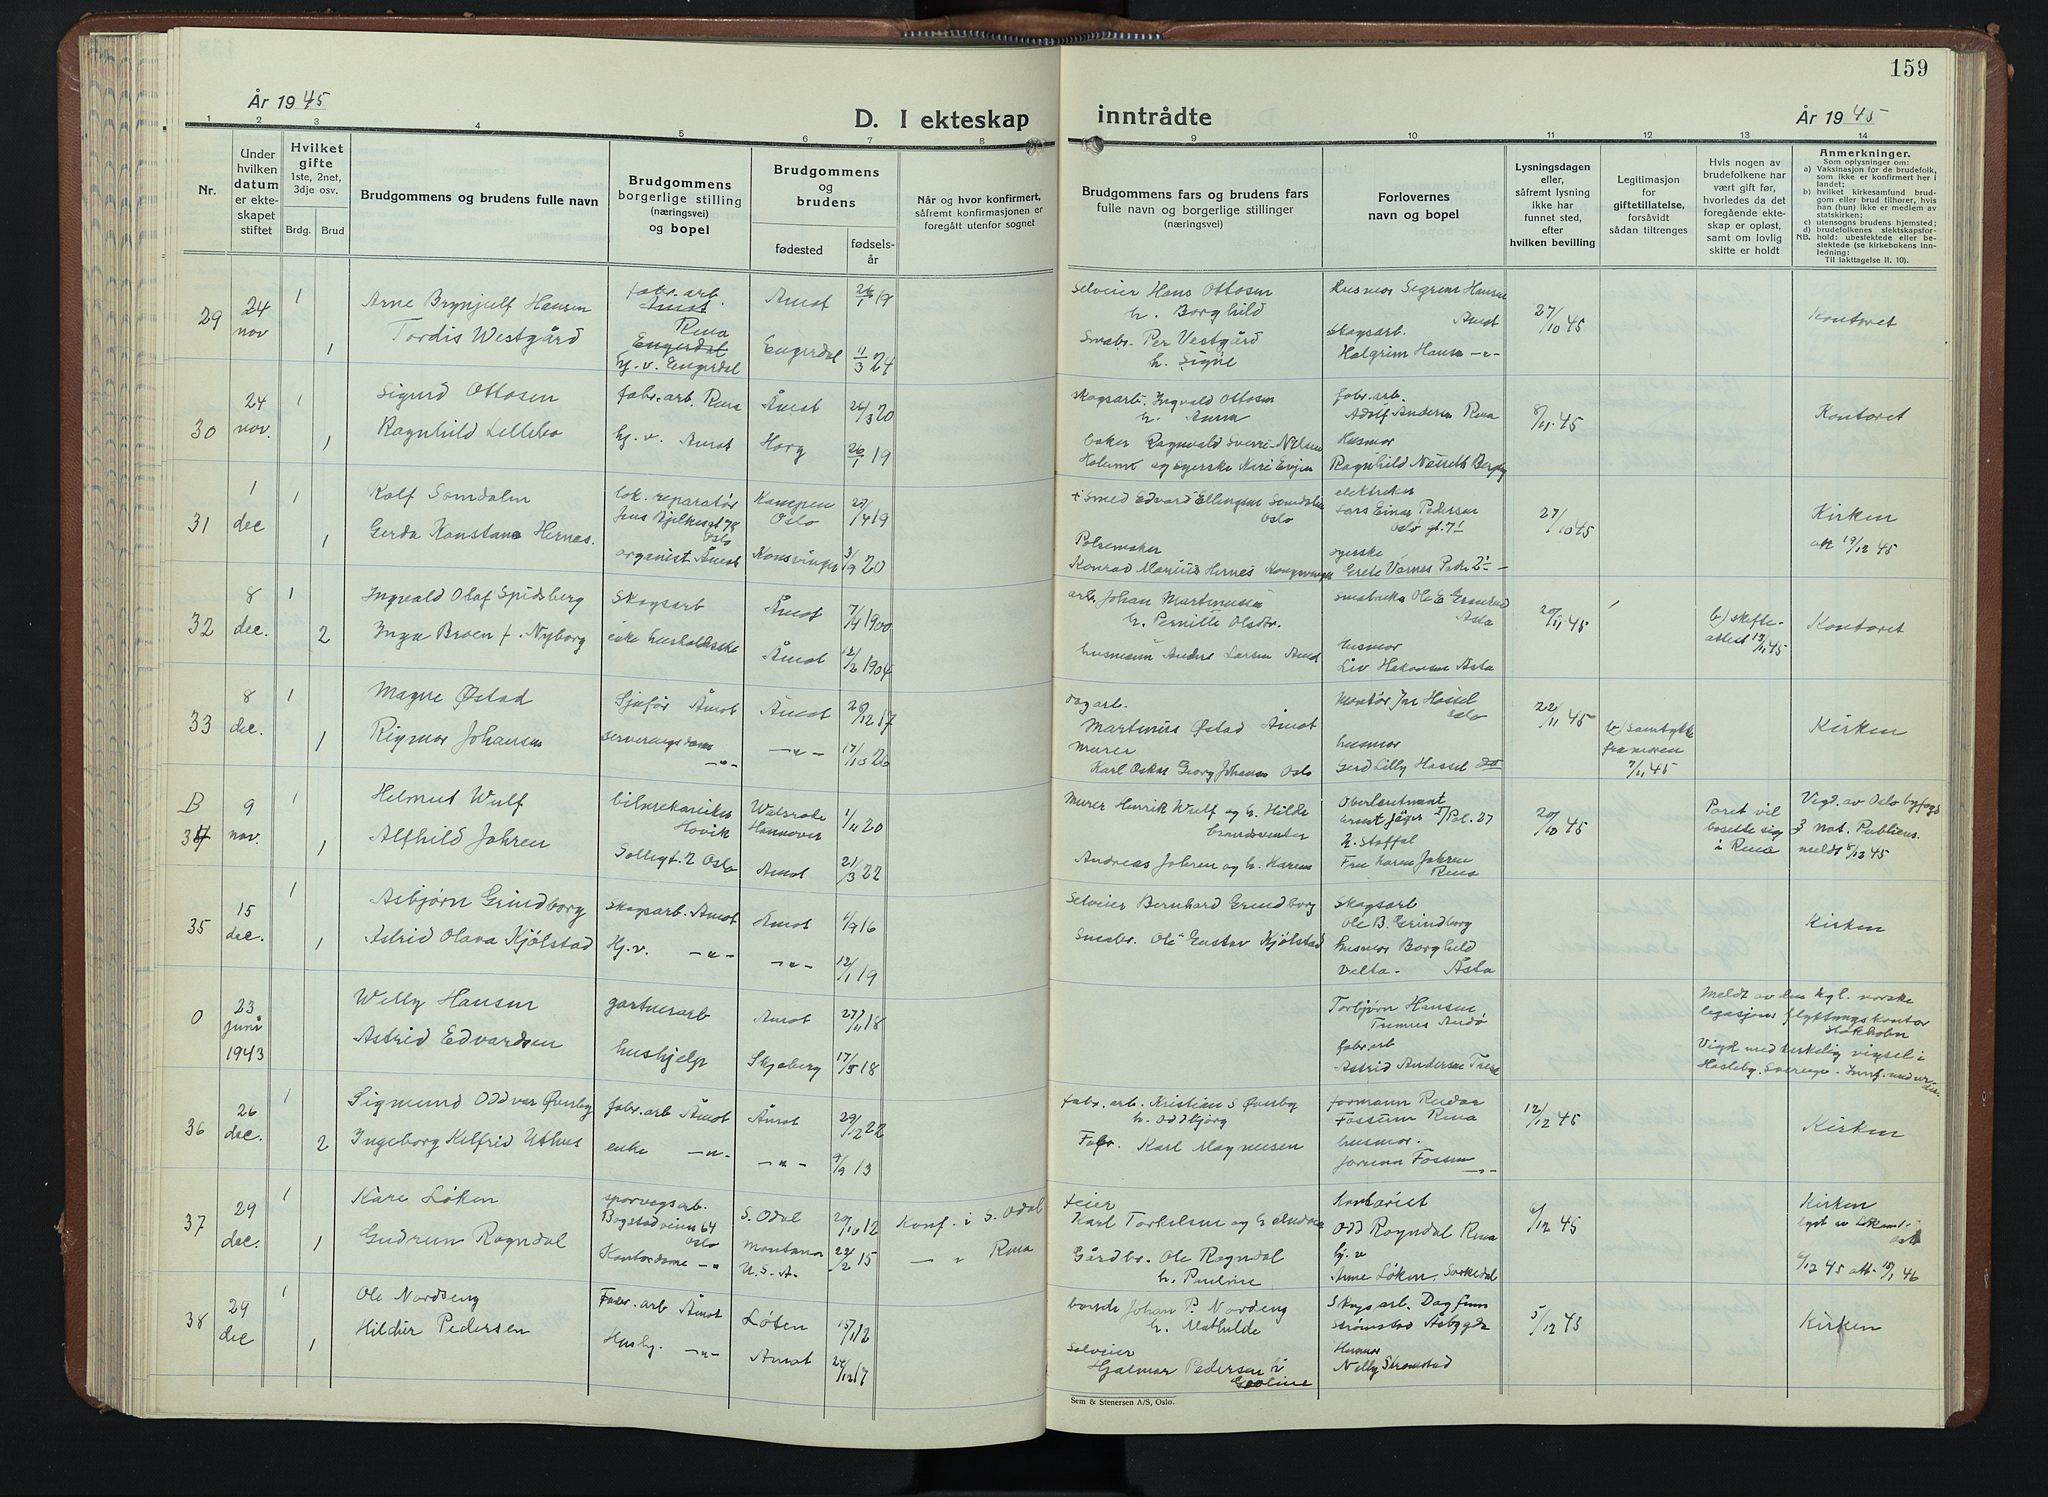 159
År 1945
D. I ekteskap inntrådte
År 1945
1 2 3 4 5 6 7 8 9 10 11 12 13 14
Nr.
Under hvilken datum er ekteskapet stiftet
Hvilket gifte 1ste, 2net, 3dje osv.
Brdg. Brud
Brudgommens og brudens fulle navn
Brudgommens borgerlige stilling (næringsvei) og bopel
Brudgommens og brudens
fødested
fødselsår
Når og hvor konfirmert, såfremt konfirmasjonen er foregått utenfor sognet
Brudgommens fars og brudens fars fulle navn og borgerlige stillinger (næringsvei)
Forlovernes navn og bopel
Lysningsdagen eller, såfremt lysning ikke har funnet sted, efter hvilken bevilling
Legitimasjon for giftetillatelse, forsåvidt sådan tiltrenges
Hvis nogen av brudefolkene har vært gift før, hvorledes da det foregående ekteskap er opløst, samt om lovlig skifte er holdt
Anmerkninger.
Som oplysninger om:
a) Vaksinasjon for de brudefolk, som ikke er konfirmert her i landet;
b) hvilket kirkesamfund brudgom eller brud tilhører, hvis han (hun) ikke er medlem av statskirken;
c) utensogns brudens hjemsted;
d) brudefolkenes slektskapsforhold: ubeslektede eller beslektede (se kirkebokens innledning;
NB. Til iakttagelse II. 10).
29 24 nov 1 Arne Brynjulf Hansen fabr.arb. Åmot Rena Åmot 26/1 19 Selveier Hans Ottosen h. Borghild Husmor Sigrun Hansen Åmot 27/10 45 Kontoret
1 Tordis Westgård Engerdal hj. v. Engerdal Engerdal 11/3 24 Småbr. Per Vestgård h. Signe Skogsarb. Halgrim Hansen -"-
30 24 nov. 1 Sigurd Ottosen fabr. arb. Rena Åmot 24/3 20 Skogsarb. Ingvald Ottosen h. Anna fabr. arb. Adolf Andersen Rena 8/11 45 Kontoret
1 Ragnhild Lillebo hj. v. Åmot Horg 26/1 19 baker Ragnvald Sverre Nilsen og syerske Kari Evjen Husmor Ragnhild
31 1 dec 1 Rolf Somdalen lok. reparatør Jens Bjelkesgt 78 Oslo Kampen Oslo 27/4 19 + Smed Edvard Ellingsen Somdalen Oslo elektriker Lars Einar Pedersen Oslo 27/10 45 Kirken att 19/12 45
1 Gerda Konstanse Hernes. organist Åmot Kongsvinger 3/9 20 Pølsemaker Konrad Marius Hernes Kongsvinger syerske Grete
32 8 dec. 1 Ingvald Olaf Spidsberg Skogsarb Åmot 7/4 1900 arb. Johan Martinusen h. Pernille Olsdtr. Småbruker Ole E Åsta 20/11 45 b) skifteattest 13/11 45 Kontoret
2 Inga Broen f. Nyborg enke husholderske Åmot 12/2 1904 husmann Anders Larsen Åmot husmor Liv Håkonsen Åsta
33 8 dec. 1 Magne Østad Sjåfør Åmot Åmot 20/12 17 dagarb. Martinus Østad Åmot Montør Hassel Oslo 22/11 45 b) samtykke fra moren 7/11 45 Kirken
1 Rigmor Johansen serveringsdame -"- -"- 17/10 26 Murer Karl Oskar Georg Johansen Oslo husmor Gerd Lilly Hassel do
B 34 9 nov. 1 Helmut Wulf bilmekaniker Høvik Walsrode Hannover 1/11 20 Murer Henrik Wulf og h. Hilde Oberleutnant Ernst Jäger 20/10 45 Paret vil bosette sig i Rena Vigd. av Oslo byfogd Not. Publicus. meldt 5/12 45
1 Alfhild Johren Solligt. 2 Oslo Åmot 21/3 22 Andreas Johren og h. Karen Fru Karen Johren Rena
35 15 dec. 1 Asbjørn Grindborg Skogsarb. Åmot Åmot 1/9 16 Selveier Bernhard Grindborg Skogsarb Ole B. Grindborg Kirken
1 Astrid Olava Kjølstad Hj. v. -"- -"- 12/1 19 Småbr. Ole Gustav Kjølstad husmor Borghild Velta - Åsta
0 23 juni 1943 Willy Hansen gartnerarb Åmot 27/11 18 Torbjørn Hansen Meldt av den kgl. norske legasjons flyktningskontor Stokholm
Astrid Edvardsen hushjelp Skjeberg 17/5 18 fabr. arb Astrid Andersen Vigd med kirkelig vigsel i Hässleby. Sverige.
36 26 dec. 1 Sigmund Oddvar Øverby fabr. arb Åmot Åmot 29/12 22 fabr. arb. Kristian S Øverby h. Oddbjørg formann Reidar Fossum Rena 12/12 45 Kirken
2 Ingeborg Kelfrid Uthus enke -"- -"- 9/9 13 Fabr. Karl Magnussen husmor. Jorunn Fossum -"-
37 29 dec. 1 Kåre Løken sporvogsarb. Bogstadveien 64 Oslo S. Odal 20/10 12 Konf. i S. Odal feier Karl Torkelsen og h Andrea Kontorist Odd Rogndal Rena 6/12 45 Kirken
1 Gudrun Rogndal Kontordame -"- Montana U.S.A. 22/2 15 — " Rena Gårdbr. Ole Rogndal h. Pauline hj. v Anne Løken, Sørkedal 6/12 45 att. 15/1 46
38 29 dec 1 Ole Nordseng Fabr. arb Åmot Løten 15/1 12 bonde Johan P. Nordeng h. Mathilde Skogsarb. Dagfinn Strømstad Åsbygda 5/12 45 Kirken
1 Hildur Pedersen Hushj. -"- Åmot 24/12 17 Selveier Hjalmar Pedersen h Husmor Nelly Strømstad
Sem & Stenersen A/S, Oslo.